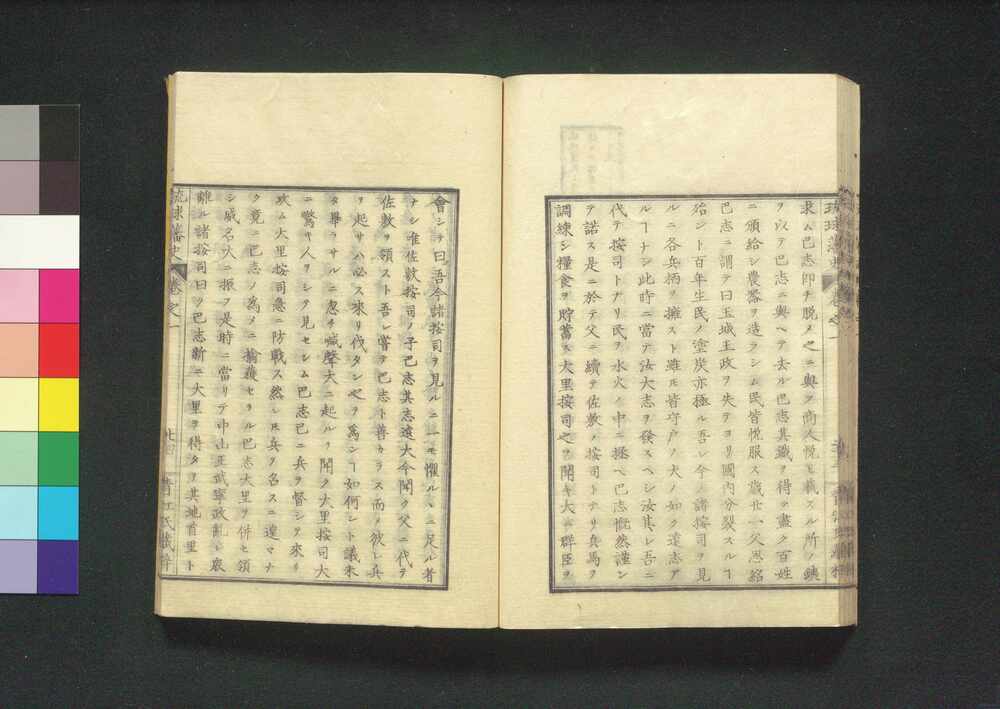 求ム巴志即チ脱メ之ニ與フ商人悦ヒ載スル所ノ鐵
ヲ以テ巴志ニ與ヘテ去ル巴志其鐵ヲ得テ盡ク百姓
ニ頒給シ農器ヲ造ラシム民皆悅服ス歳廿一父思紹
巴志ニ謂テ曰玉城王政ヲ失テヨリ國內分裂スルヿ
殆ント百年生民ノ塗炭亦極ル吾レ今ノ諸按司ヲ見
ルニ各兵柄ヲ擁スト雖𪜈皆守戸ノ犬ノ如ク遠志ア
ルヿナシ此時ニ當テ汝大志ヲ發スヘシ汝其レ吾ニ
代テ按司トナリ民ヲ水火ノ中ニ拯ヘ巴志慨然謹ン
テ諾ス是ニ於テ父ニ續テ佐敷ノ按司トナリ兵馬ヲ
調練シ糧食ヲ貯蓄ス大里按司之ヲ聞キ大ニ群臣ヲ
會シテ曰吾今諸按司ヲ見ルニ一モ懼ルヽニ足ル者
ナシ唯佐敷按司ノ子巴志其志遠大今聞ク父ニ代テ
佐敷ヲ領スト吾レ嘗テ巴志ト善カラス而ノ彼レ兵
ヲ起サハ必ス來リ伐タン之ヲ為シヿ如何シト議未
タ畢ラサルニ忽チ喊聲大ニ起ルヲ聞ク大里按司大
ニ驚キ人ヲシテ見セシム巴志已ニ兵ヲ督シテ來リ
攻ム大里按司急ニ防戰ス然レ𪜈兵ヲ名スニ遑マナ
ク竟ニ巴志ノ為メニ擒獲セラル巴志大里ヲ併セ領
シ威名大ニ振フ是時ニ當リテ中山王武寧政亂レ衆
離ル諸按司曰ク巴志新ニ大里ヲ得タリ其地首里ト
琉球藩史 卷之一
廿四
青江氏藏梓